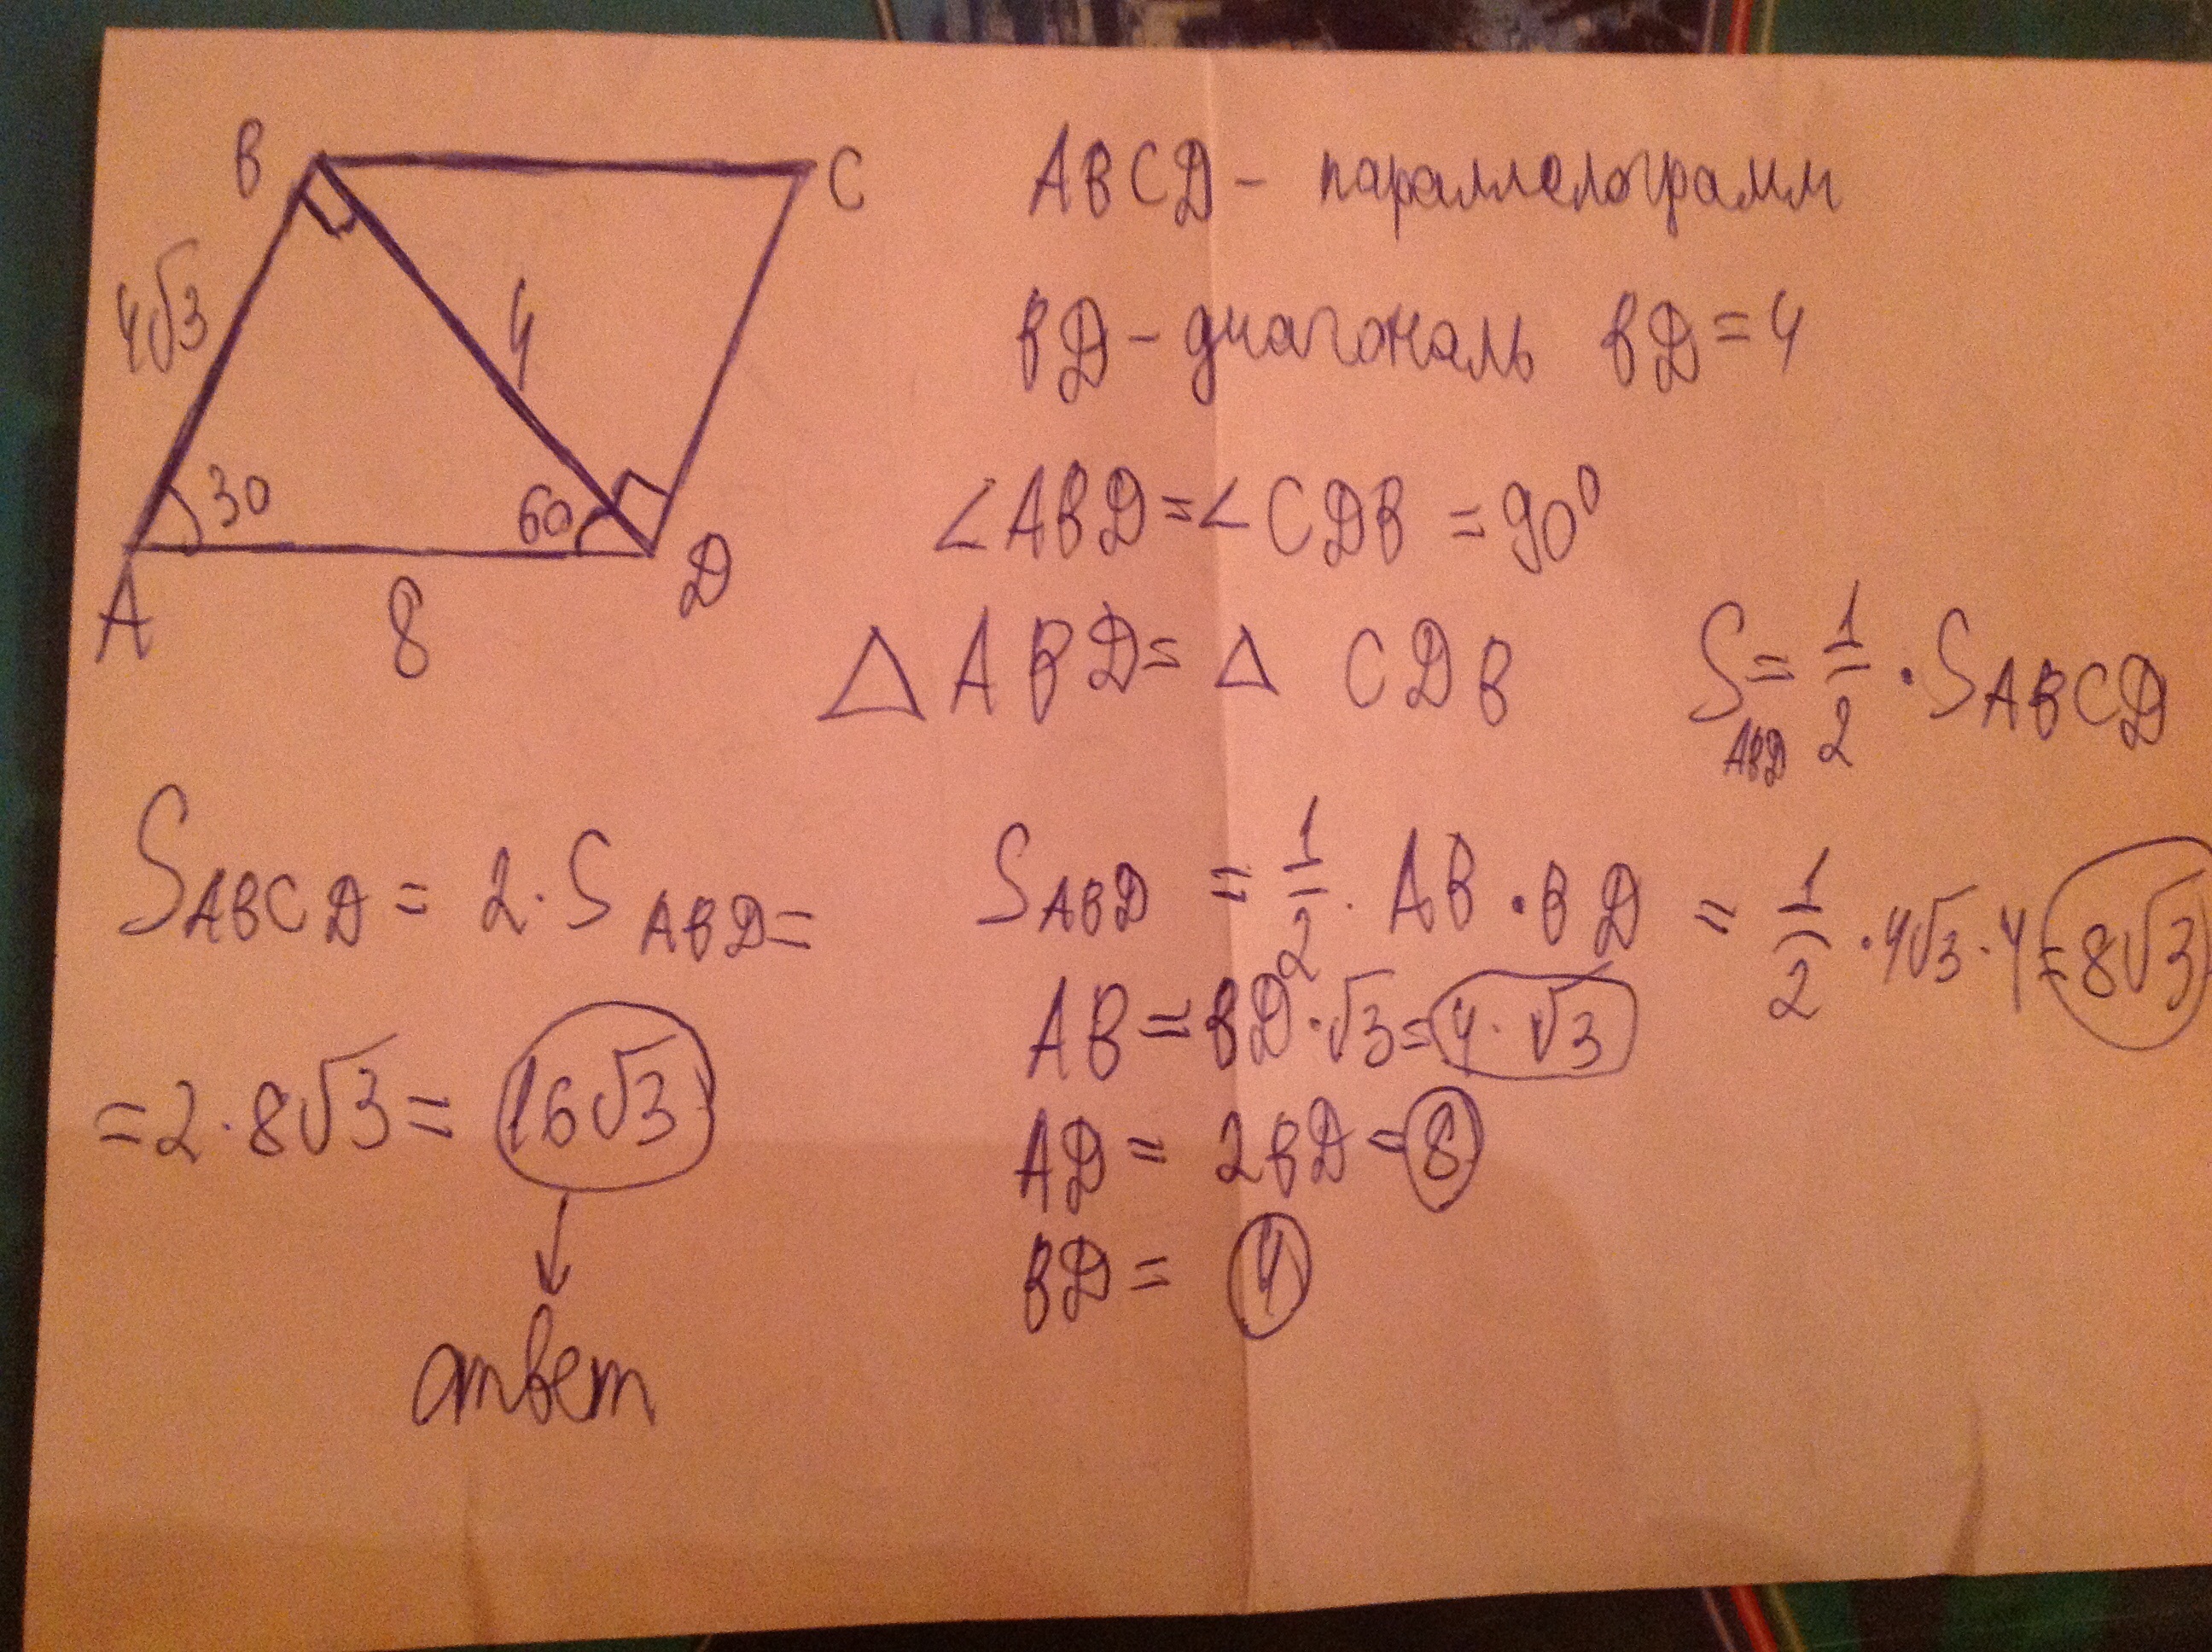 B
C
4√3
4
30
60
A
D
8
ABCD - параллелограмм
BD - диагональ BD = 4
∠ABD = ∠CDB = 90°
△ABD = △CDB
S ABD = 1/2 · S ABCD
S ABCD = 2 · S ABD =
= 2 · 8√3 = 16√3
ответ
S ABD = 1/2 · AB · BD = 1/2 · 4√3 · 4 = 8√3
AB = BD · √3 = 4 · √3
AD = 2BD = 8
BD = 4